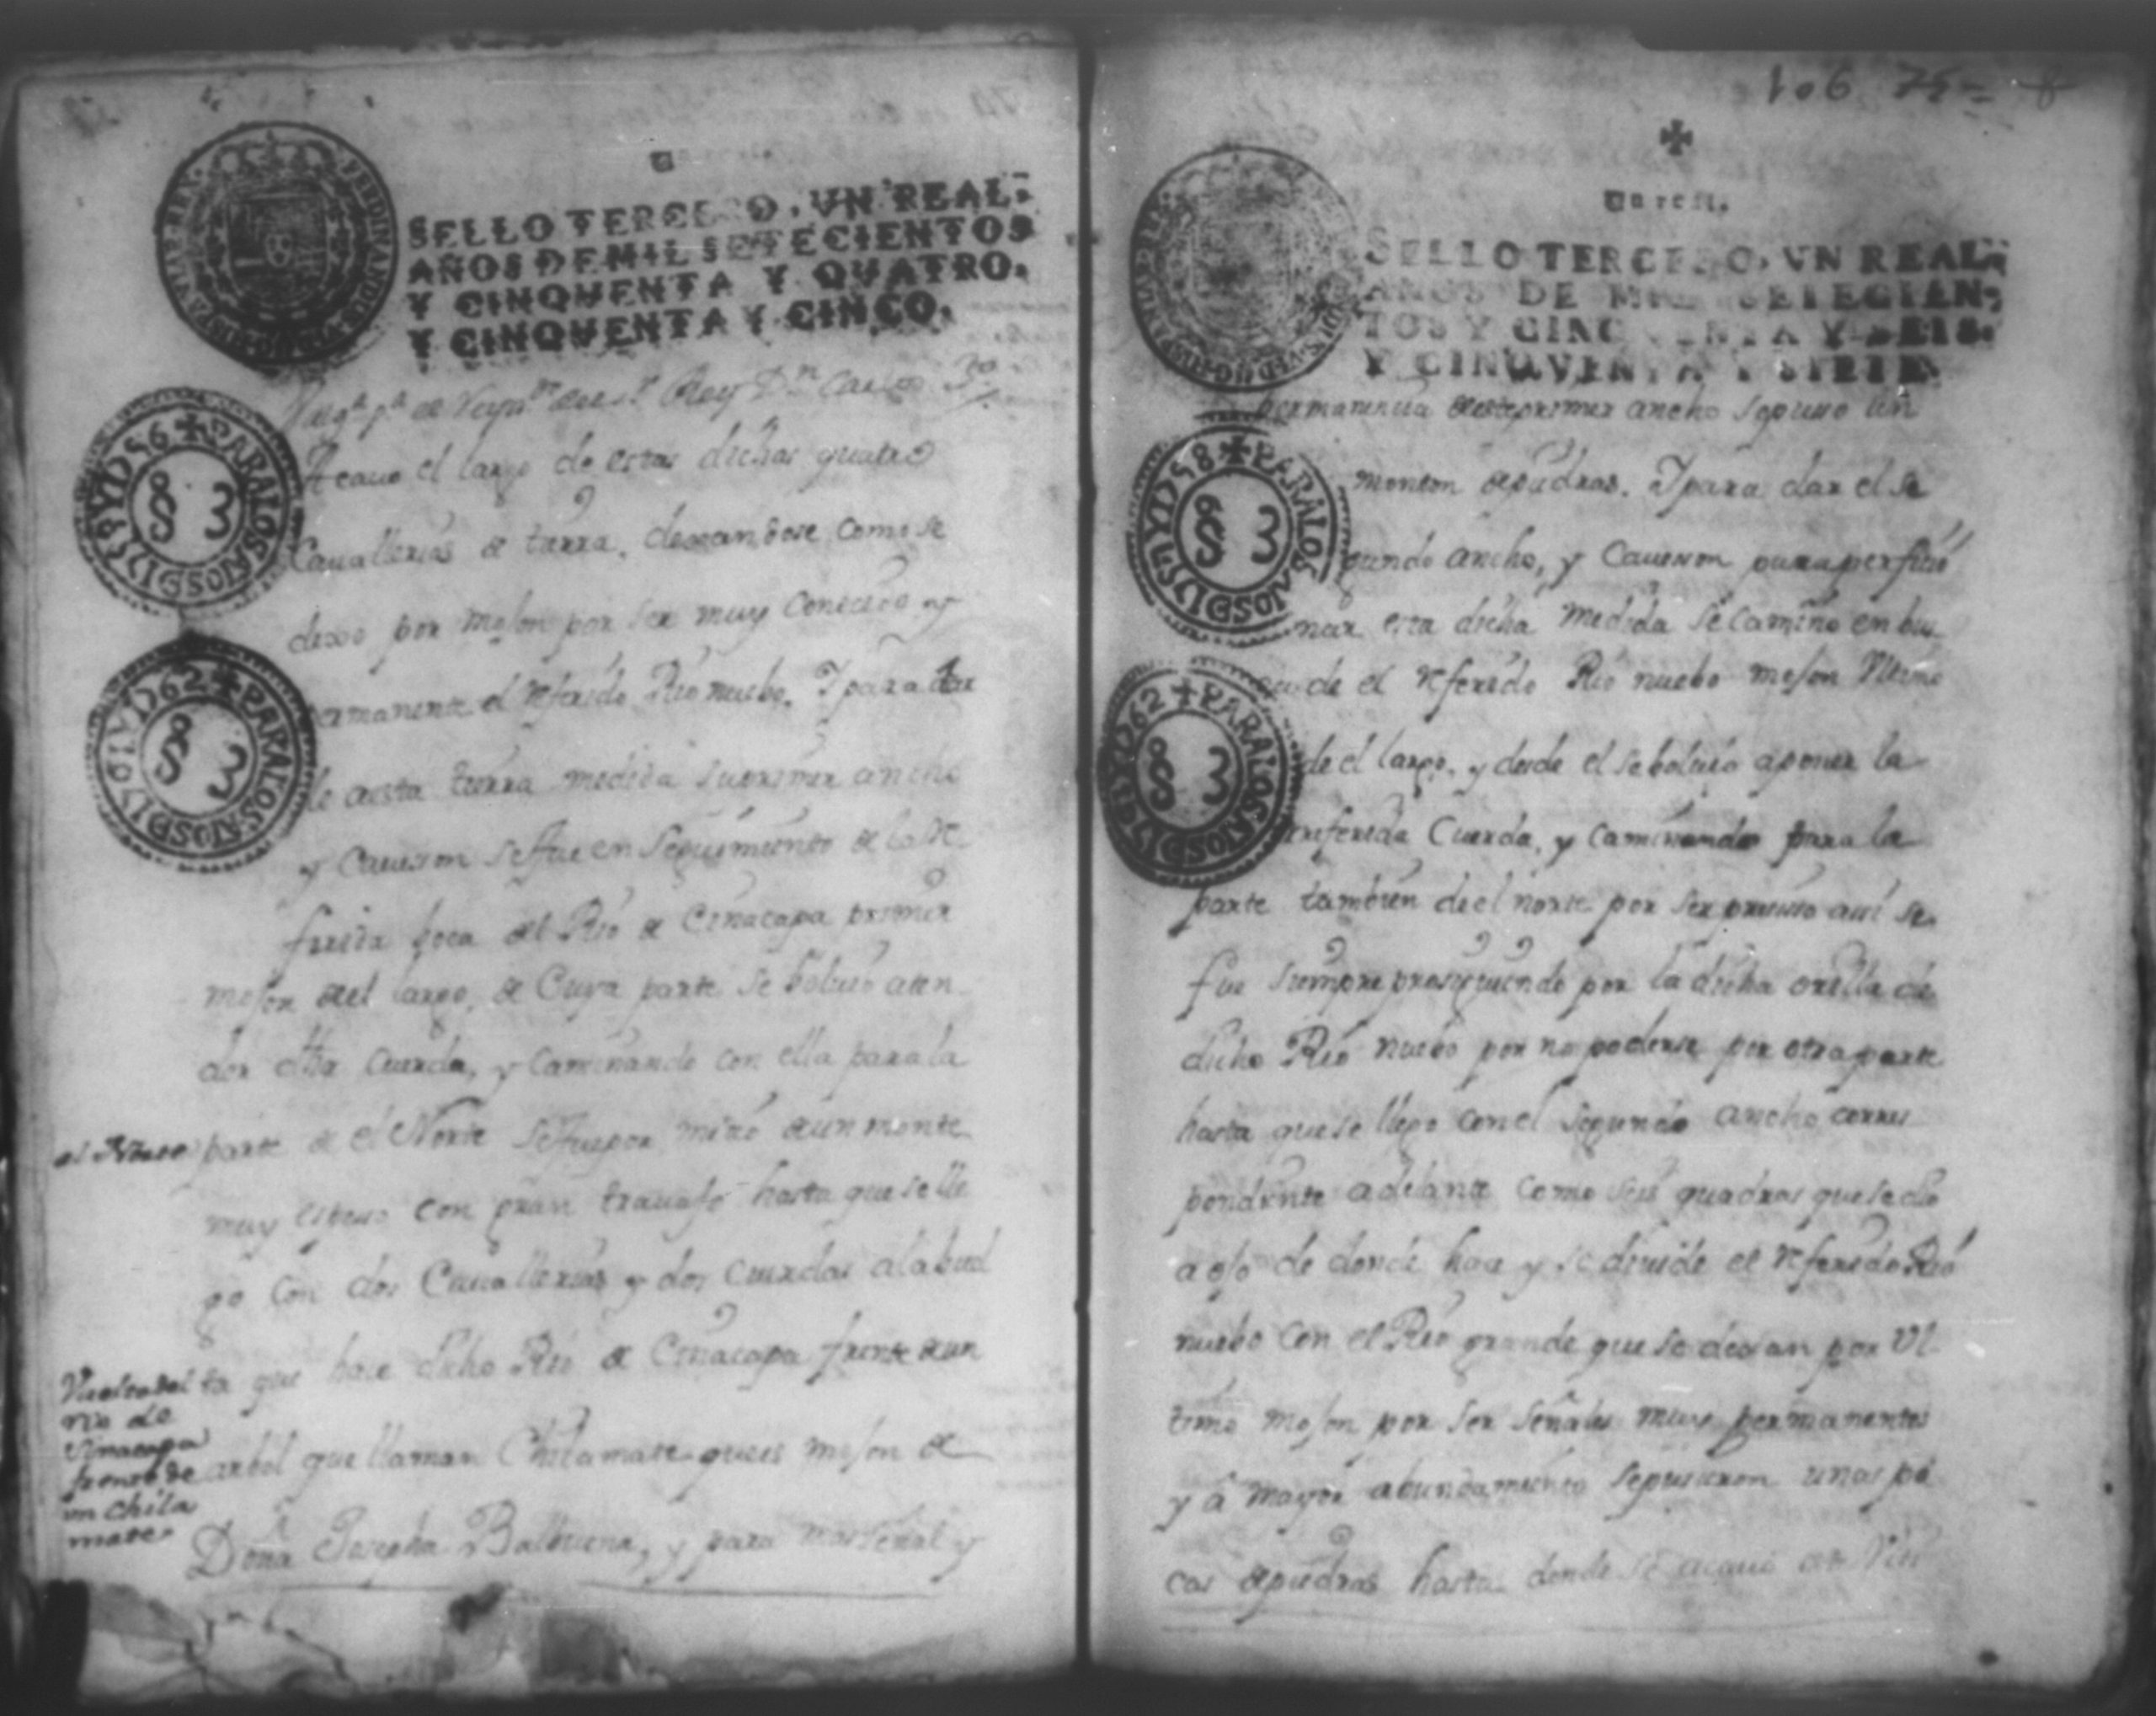 SELLO TERCERO, VN REAL,
AÑOS DE MIL SETECIENTOS
Y CINQUENTA Y QUATRO,
Y CINQUENTA Y CINCO.
Rey Dn Carlos 3o
✠ PARA LOS AÑOS D
§ 3
✠ PARA LOS AÑOS D
§ 3
Acauo el largo de estas dichas quatro
Cauallerias de tierra, dexandose como se
dexo por mojon por ser muy conocido y
permanente el referido Rio nuebo. Y para dar
le a esta tierra medida su primer ancho
y Caueson se fue en seguimiento de la re
ferida boca del Rio de Cinacapa primer
mojon del largo, de Cuya parte se boluio aten
der dha Cuerda, y Caminando con ella para la
parte de el Norte se fue por medio de un monte
muy espeso con gran trauajo hasta que se lle
go con dos Cauallerias y dos Cuerdas a la buel
ta que hace dicho Rio de Cinacapa frente de un
arbol que llaman Chilamate que es mojon de
Doña Josepha Balbuena, y para mas señal y
al Norte
Vuelta del
rio de
Sinacapa
frente de
un chila
mate
106 75
✠
Vn real.
SELLO TERCERO, VN REAL,
AÑOS DE MIL SETECIEN,
TOS Y CINCUENTA Y SEIS.
Y CINQUENTA Y SIETE.
✠ PARA LOS AÑOS D
§ 3
✠ PARA LOS AÑOS D
§ 3
permanencia de este primer ancho se puso un
monton de piedras. Y para dar el se
gundo ancho, y Caueson para perficio
nar esta dicha medida se camino en bus
ca de el referido Rio nuebo mojon Ultimo
de el largo, y desde el se boluio a poner la
referida Cuerda, y caminando para la
parte tambien de el norte por ser preciso asi se
fue siempre prosiguiendo por la dicha orilla de
dicho Rio nuebo por no poderse por otra parte
hasta que se llego con el segundo ancho corres
pondiente adelante como seis quadras que se dio
a ojo de donde hace y se diuide el referido Rio
nuebo con el Rio grande que se dexan por Ul
timo mojon por ser señales muy permanentes
y a mayor abundamiento se pusieron unas po
cas de piedras hasta donde se acauo